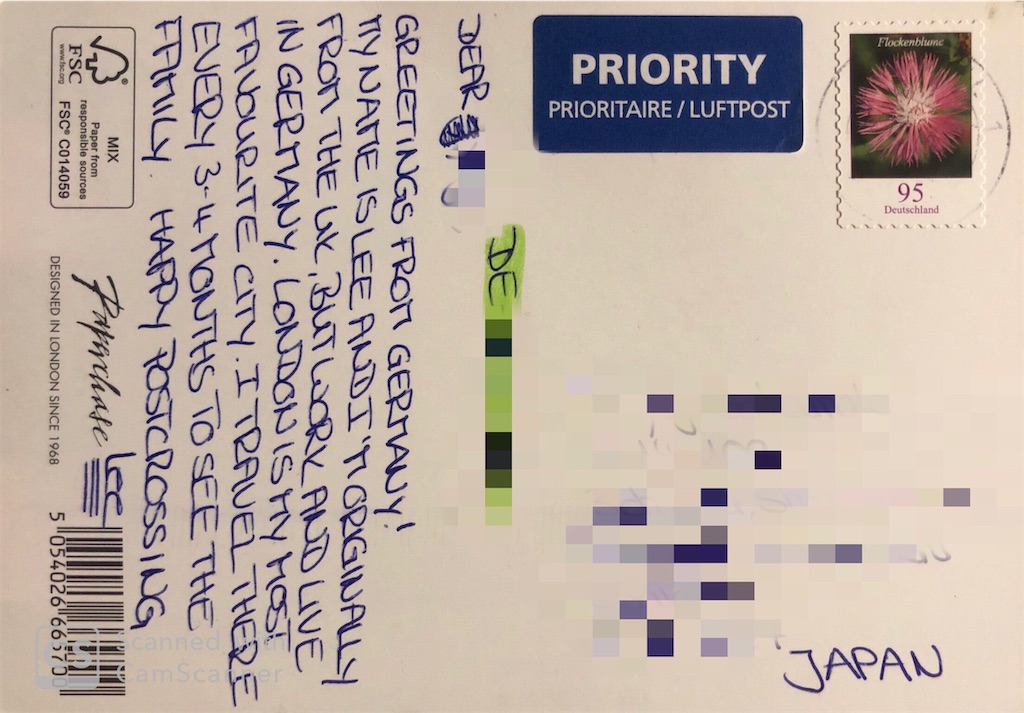 PRIORITY
PRIORITAIRE / LUFTPOST
Flockenblume
95
Deutschland
DEAR
GREETINGS FROM GERMANY!
MY NAME IS LEE AND I'M ORIGINALLY
FROM THE UK, BUT WORK AND LIVE
IN GERMANY. LONDON IS MY MOST
FAVOURITE CITY. I TRAVEL THERE
EVERY 3-4 MONTHS TO SEE THE
FAMILY. HAPPY POSTCROSSING
Lee
DE
JAPAN
FSC®
www.fsc.org
MIX
Paper from
responsible sources
FSC® C014059
Paperchase
DESIGNED IN LONDON SINCE 1968
5 054026 665700
CS
Scanned with
CamScanner